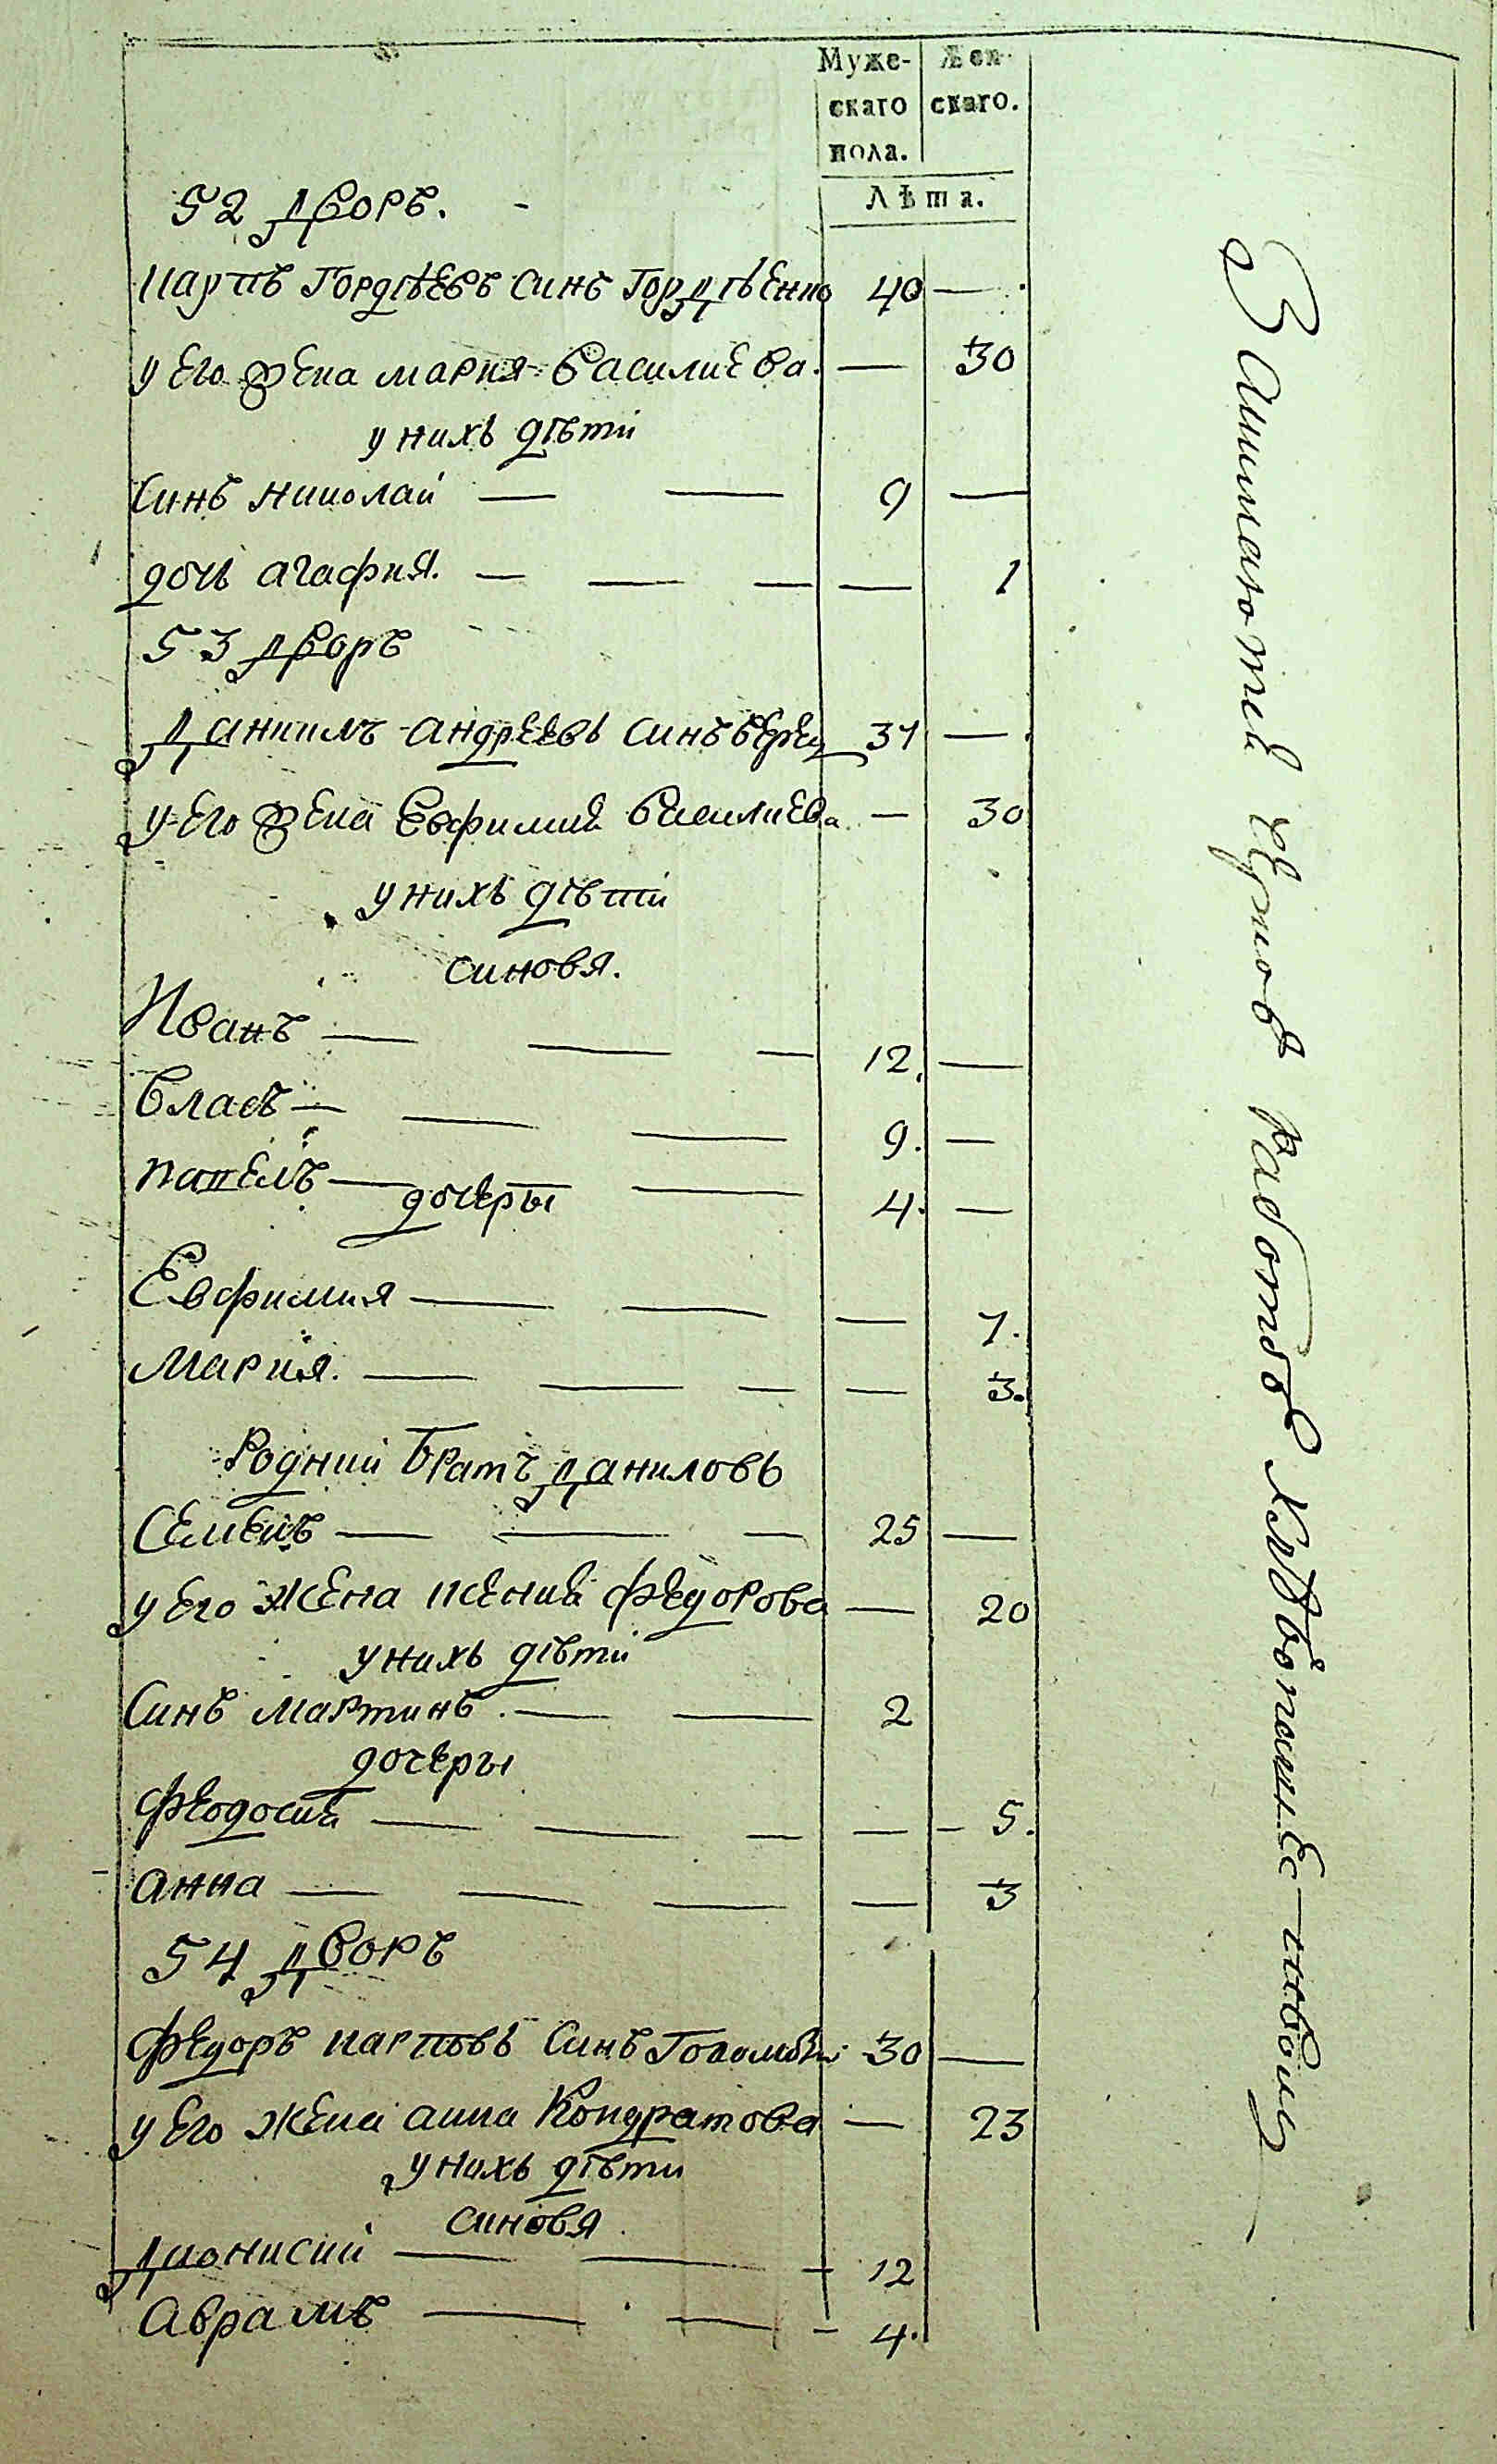 Муже-
скаго
пола.
Жен-
скаго.
Лѣта.
52 Дворъ.
Карпъ Гордѣевъ Синъ Гордѣенко 40 —
у Его жена мария Василиева. — 30
у нихъ дѣти
Синъ николай — — 9 —
дочь агафия. — — — — 1
53 Дворъ
Даниилъ андреевъ синъ 31 —
у Его жена Евфимия Василиева — 30
у нихъ дѣти
синовя.
Иванъ — — — 12. —
Власъ — — — 9. —
павелъ — — — 4. —
дочеры
Евфимия — — — 7.
Мария. — — — — 3.
Родний братъ Даниловъ
Семенъ — — — 25 —
у Его жена ксения федорова — 20
у нихъ дѣти
Синъ мартинъ. — — 2
дочеры
феодосия — — — — — 5.
анна — — — — 3
54 Дворъ
федоръ карповъ Синъ 30 —
у Его жена анна Кондратова — 23
у нихъ дѣти
синовя.
Дионисий — — — 12
Аврамъ — — — 4.
Занимаются работою